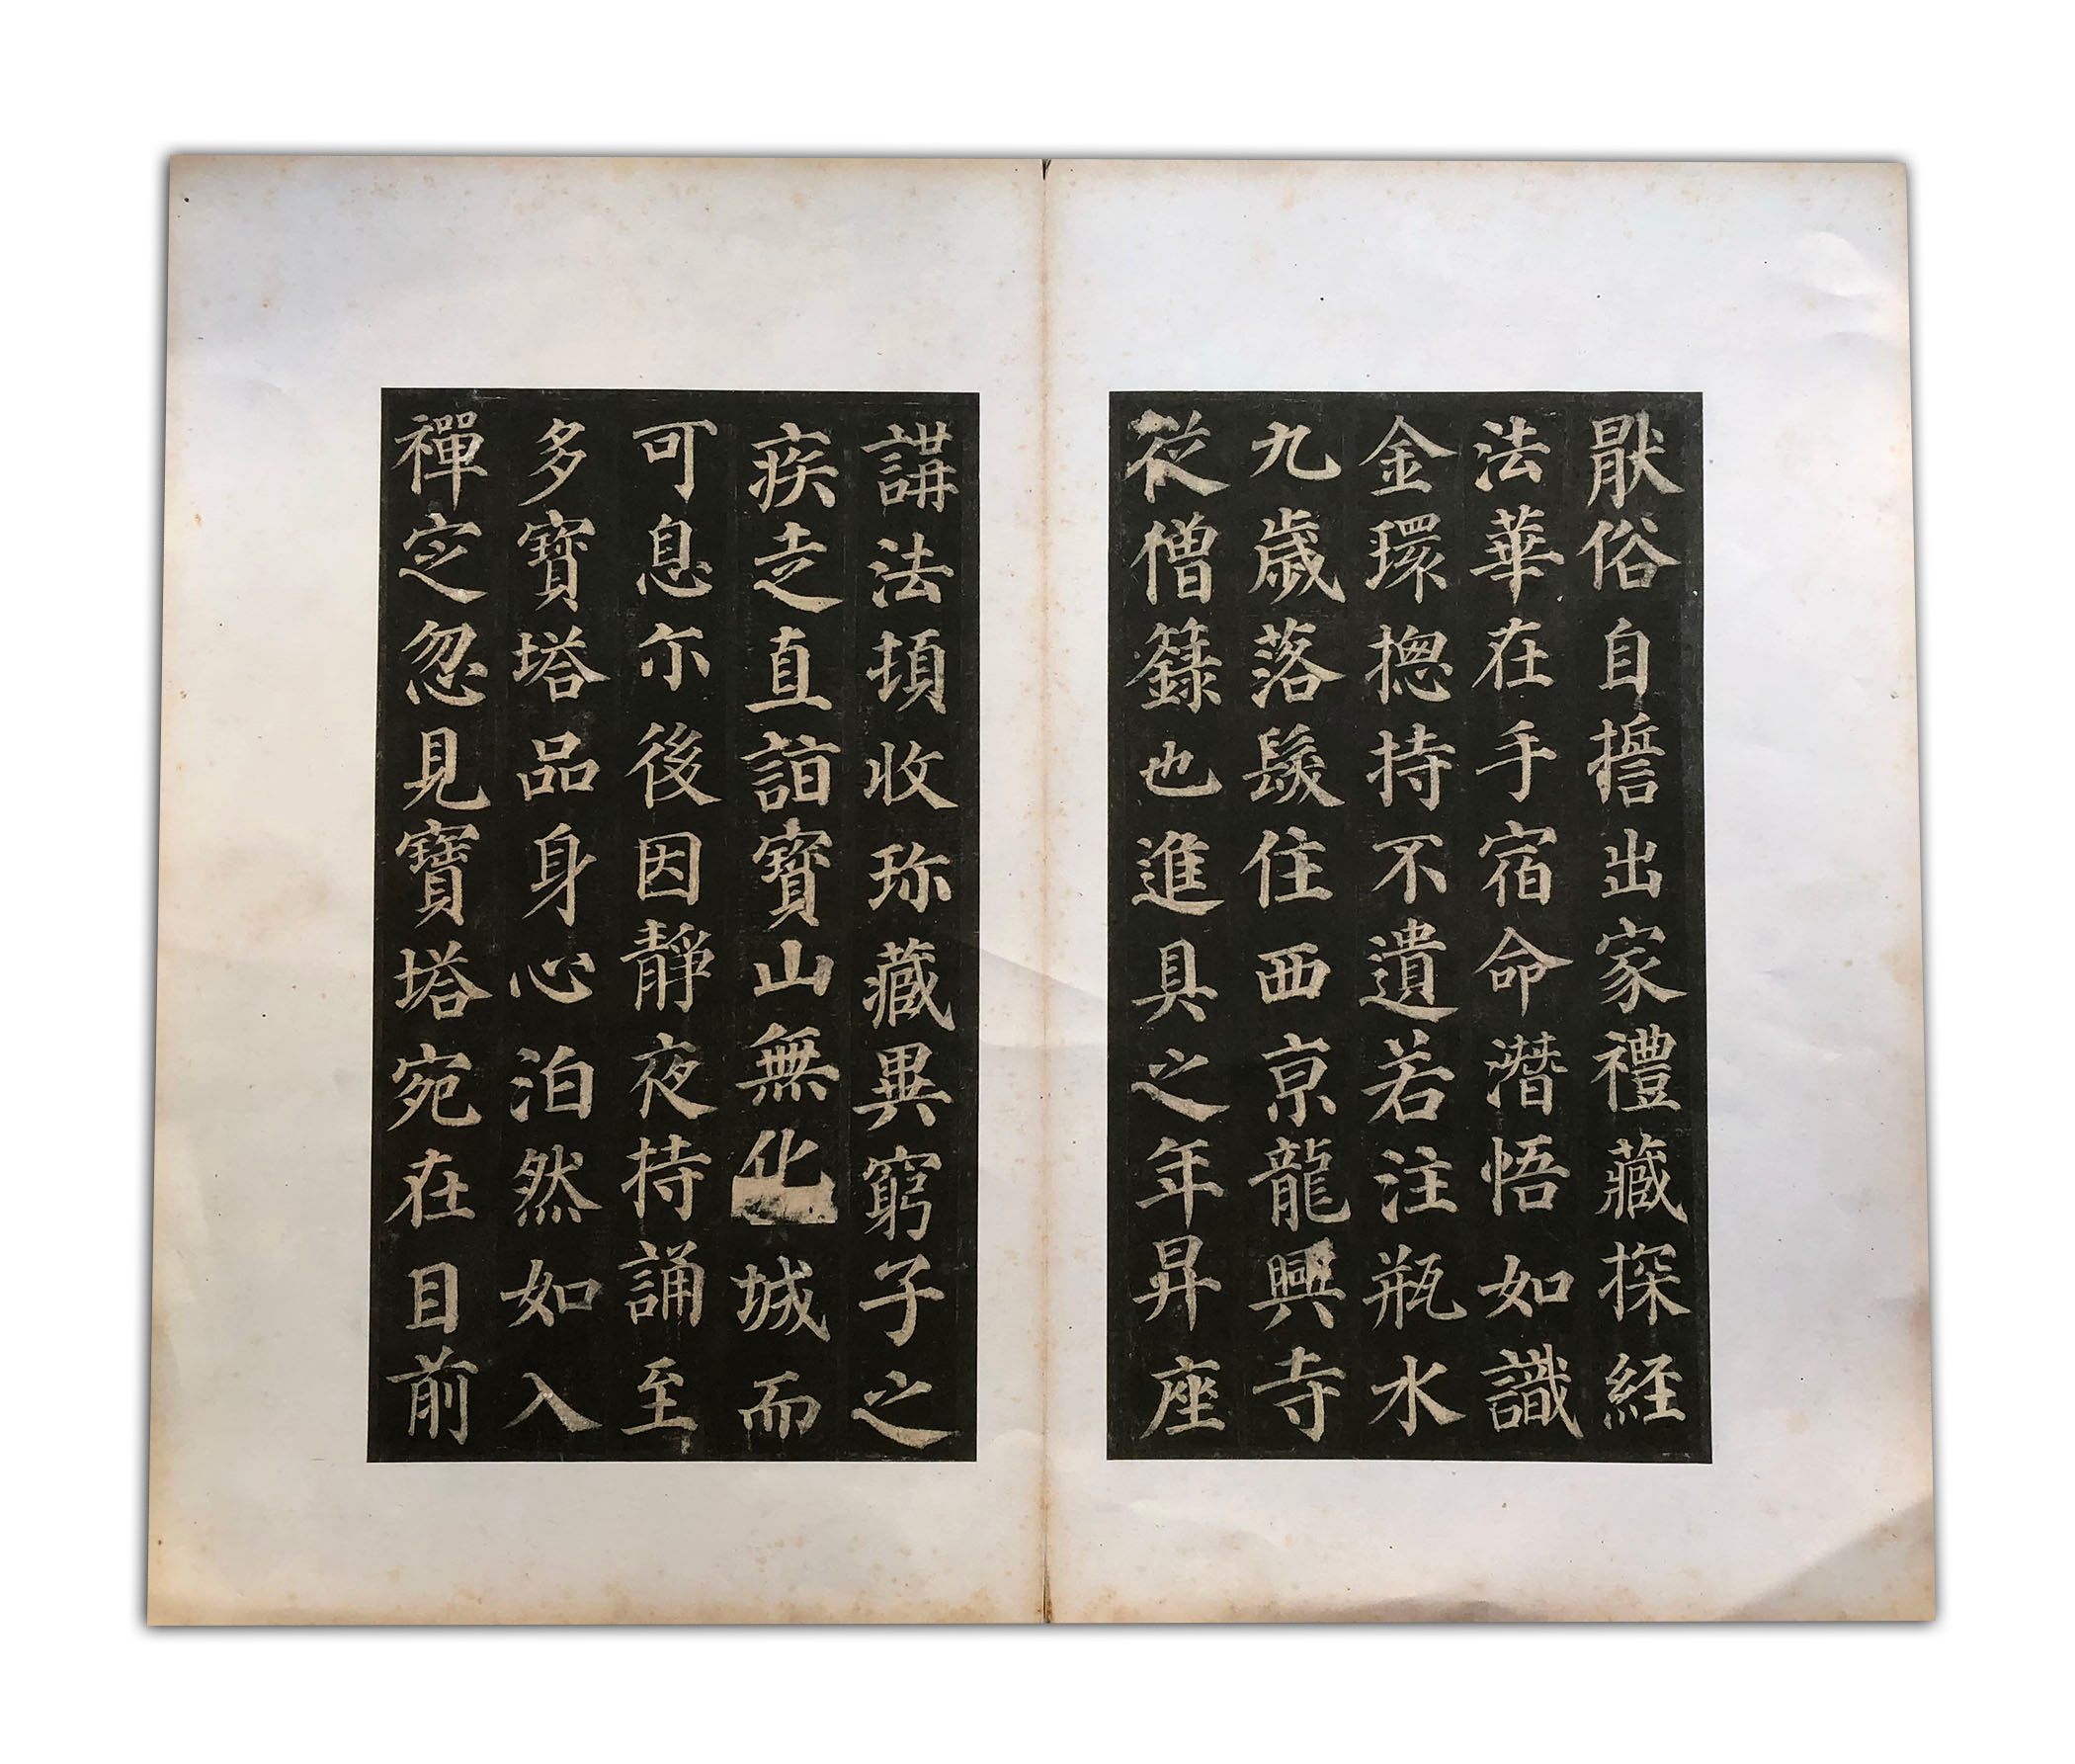 猒俗自誓出家禮藏探經
法華在手宿命潛悟如識
金環揔持不遺若注瓶水
九歲落髮住西京龍興寺
從僧籙也進具之年昇座
講法頓收珎藏異窮子之
疾走直詣寳山無化城而
可息尒後因靜夜持誦至
多寳塔品身心泊然如入
禪定忽見寶塔宛在目前